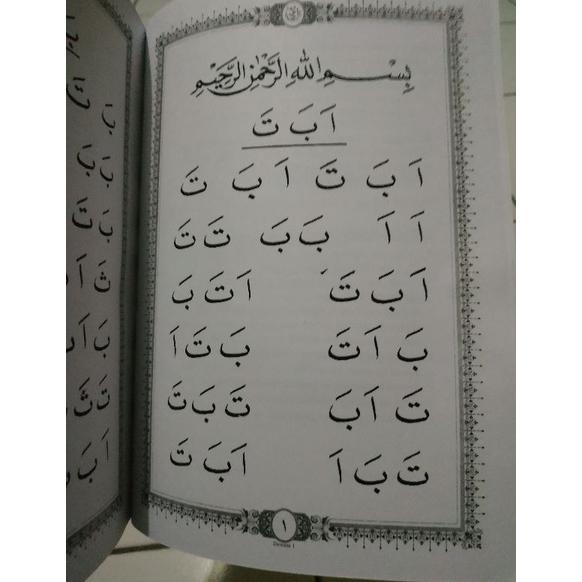 بِسْمِ اللهِ الرَّحْمٰنِ الرَّحِيْمِ
اَ بَ تَ
اَ بَ تَ اَ بَ تَ
اَ اَ بَ بَ تَ تَ
اَ بَ تَ اَ تَ بَ
بَ اَ تَ بَ تَ اَ
تَ اَ بَ تَ بَ تَ
تَ بَ اَ اَ بَ تَ
١